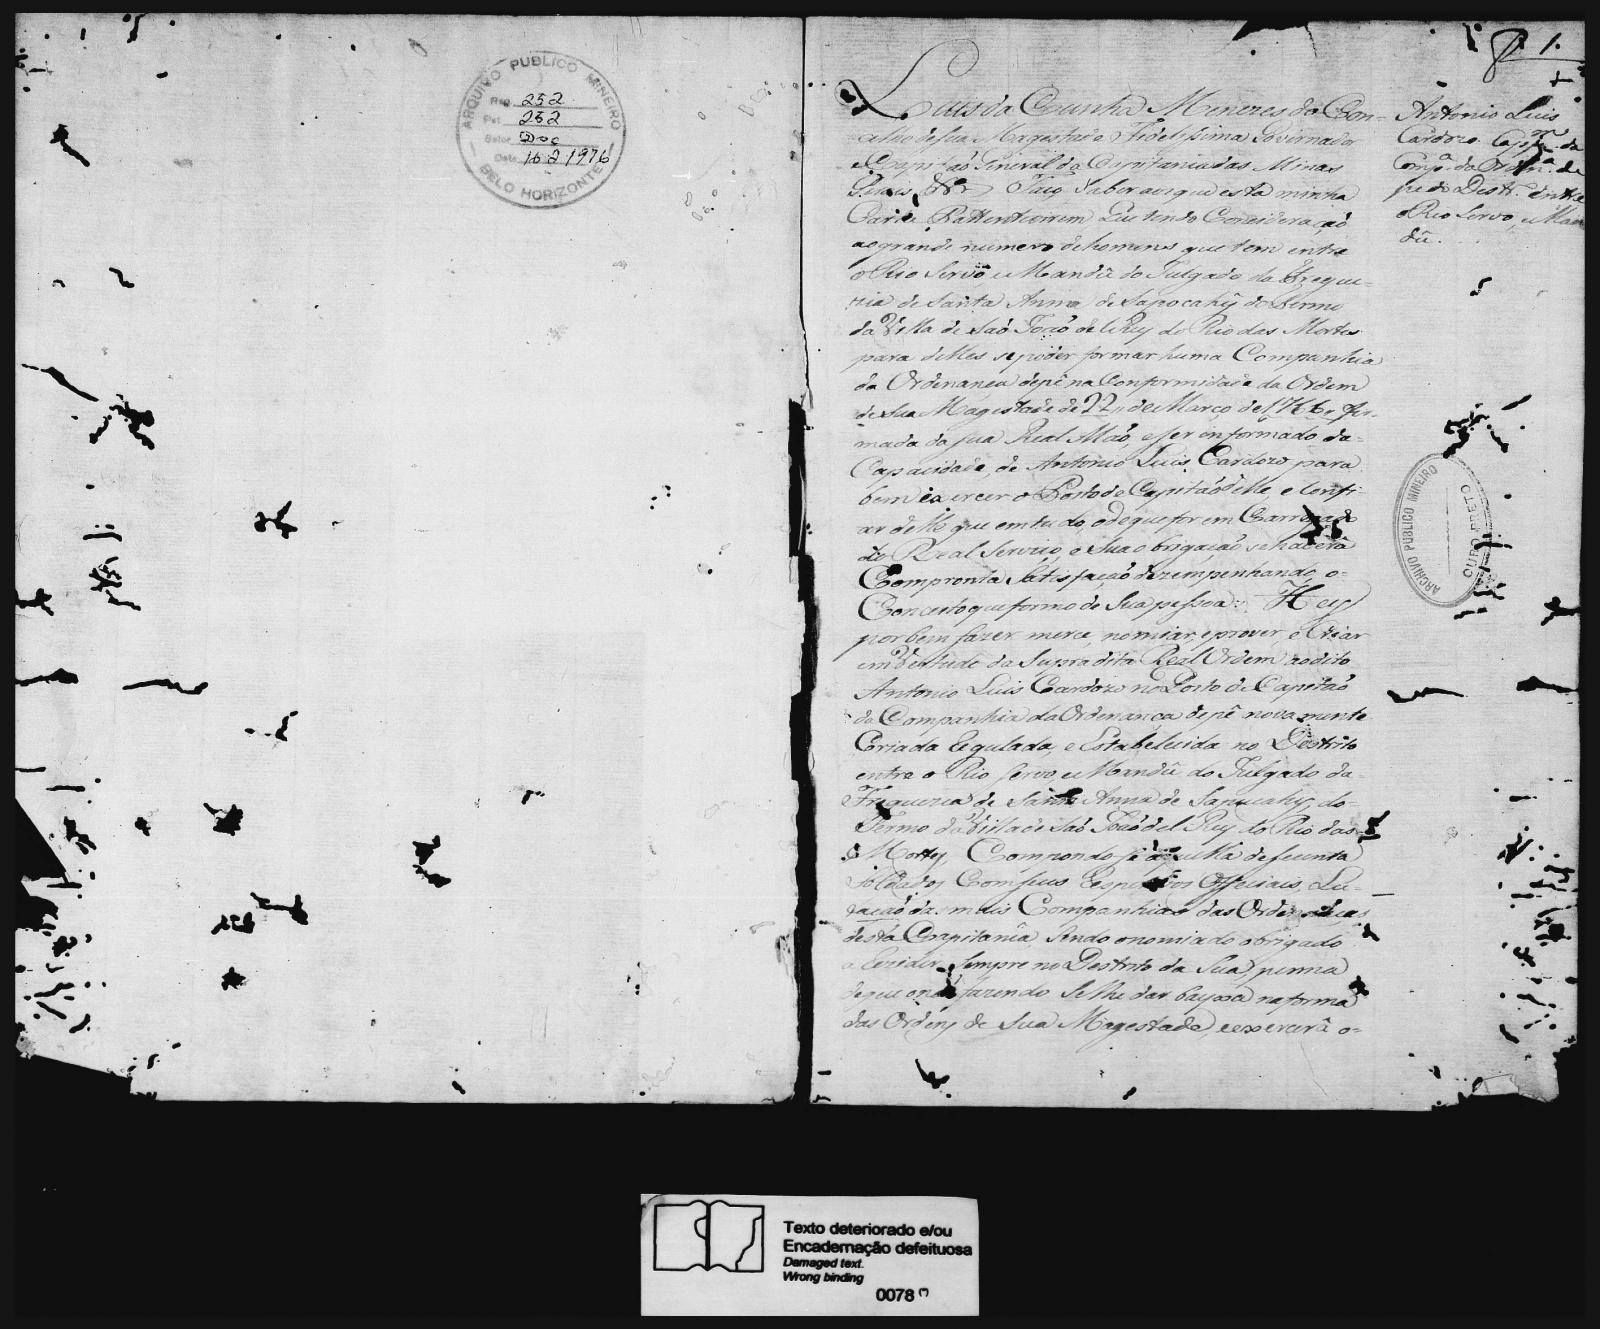 ARQUIVO PUBLICO MINEIRO
Reg. 252
Pat. 252
Setor Doc
Data 16 2 1976
BELO HORIZONTE
1.
Luis da Cunha Menezes do Con-
celho de Sua Magestade Fidelissima Governador
e Capitaó General da Capitania das Minas
Geraes &ª Faço saber aos que esta minha
Carta Pattente virem que tendo Concideraçaó
ao grande numero de homens que tem entre
o Rio Servo e Mandû do Julgado da Fregue-
zia de Santa Anna de Sapocahÿ do Termo
da Villa de Saó Joaó del Rey do Rio das Mortes
para delles se poder formar huma Companhia
da Ordenança depê na Conformidade da Ordem
de Sua Magestade de 22 de Março de 1766 fir-
mada da sua Real Maó, e ser enformado da-
Capacidade, de Antonio Luis Cardozo para
bem exercer o Posto de Capitaó delle, e Confi-
ar delle que em tudo, o de que for em Carregado
do Real Serviço, e Sua obrigaçaó se haverâ
Com pronta Satisfaçaó dezempenhando, o-
Conceito que formo de Sua pessoa: Hey
por bem fazer merce, nomiar, e prover, e Criar
em Vertude da Supradita Real Ordem ao dito
Antonio Luis Cardozo no Posto de Capitaó
da Companhia da Ordenança depê novamente
Criada Regulada, e Estabelecida no Destrito
entre o Rio Servo, e Mandû do Julgado da-
Freguezia de Santa Anna de Sapucahy, do-
Termo da Villa de Saó Joaó del Rey do Rio das
Mortes, Compondo se aquella de secenta
Soldados Com seus Respectivos Officiais, Lu-
taçaó das mais Companhias das Ordenanças
desta Capitania Sendo o nomiado obrigado
a Rezidir Sempre no Destrito da Sua, penna
de que o naó fazendo Selhe dar bayxa na forma
das Ordens de Sua Magestade, e exercerâ o-
Antonio Luis
Cardozo. Cappm. da
Compª. da Ordn.ª de
pe do Destr.º entre
o Rio Servo, e Man
dû.
ARCHIVO PUBLICO MINEIRO
OURO PRETO
Texto deteriorado e/ou
Encadernação defeituosa
Damaged text.
Wrong binding
0078